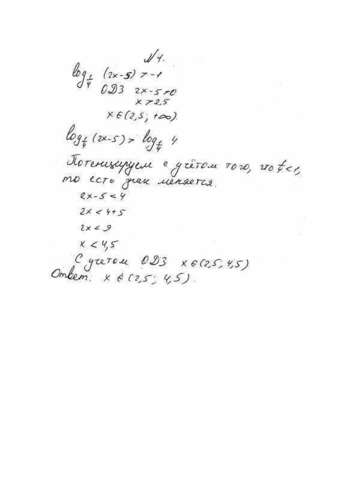 №1.
log_{1/4} (2x-5) > -1
ОДЗ 2x-5>0
x>2,5
x∈(2,5; +∞)
log_{1/4} (2x-5) > log_{1/4} 4
Потенцируем с учётом того, что 1/4 < 1,
то есть знак меняется.
2x-5<4
2x<4+5
2x<9
x<4,5
С учетом ОДЗ x∈(2,5; 4,5)
Ответ. x∈(2,5; 4,5).